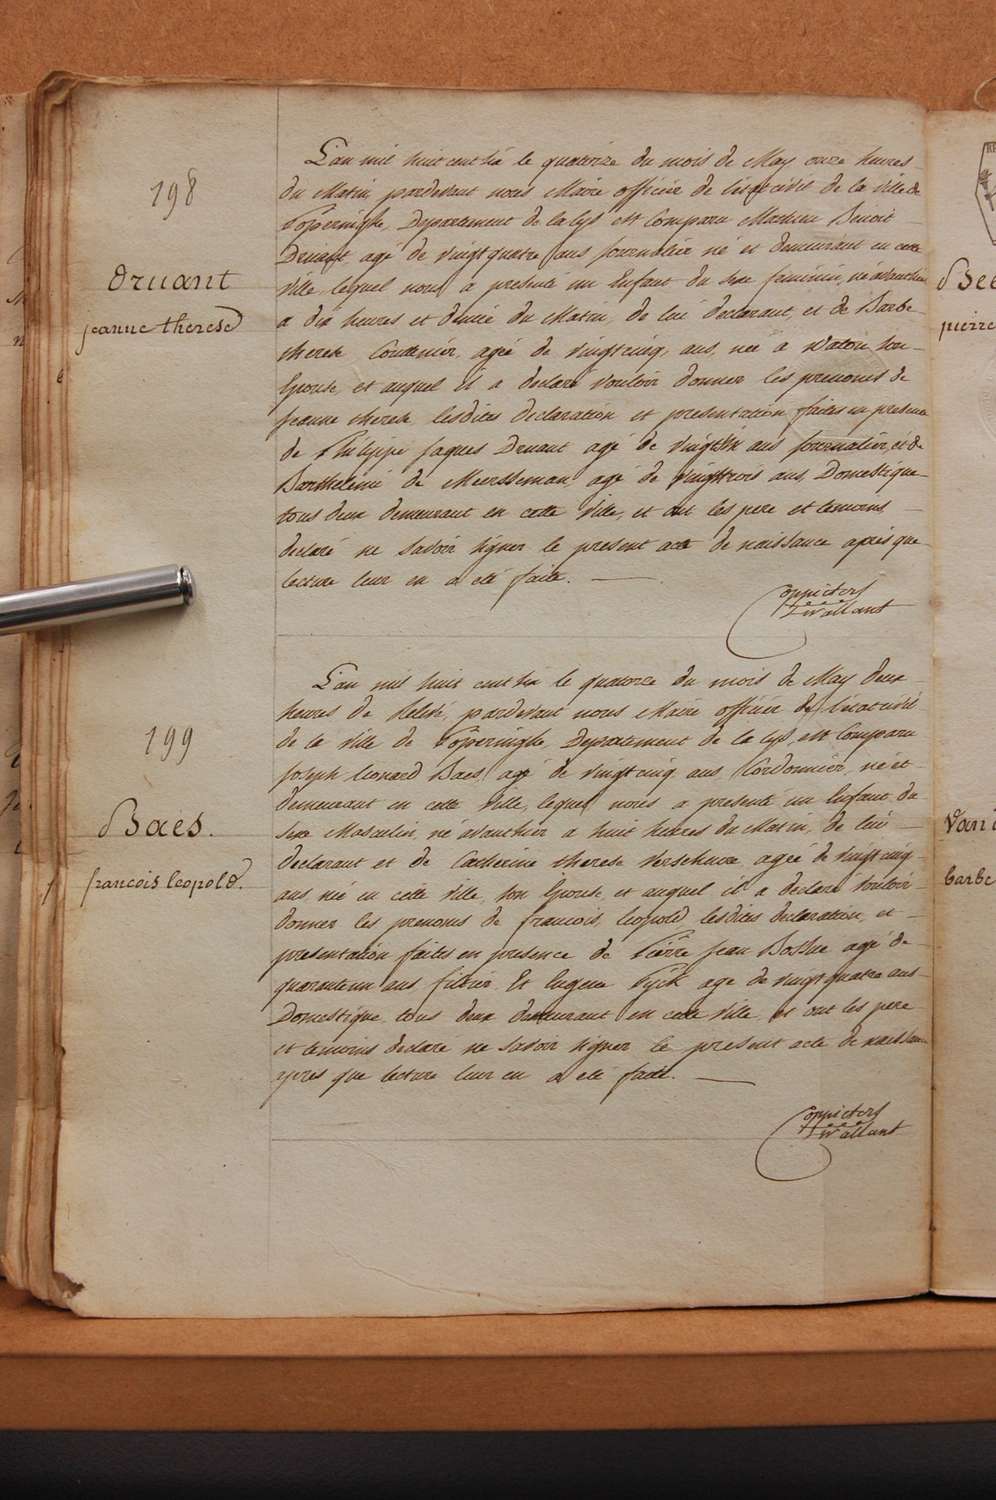 198
Druant
jeanne therese
L'an mil huit cent six le quatorze du mois de May onze heures
du Matin, pardevant nous Maire officier de l'état civil de la Ville de
Poperinghe, Departement de la Lys est Comparu Mathieu Benoit
Druant agé de vingt quatre ans Journalier né et demeurant en cette
Ville, lequel nous a presenté un Enfant du sexe feminin, né avanthier
a dix heures et demie du Matin, de lui declarant, et de Barbe
therese Couttenier, agée de vingt cinq ans, née à Watou son
Epouse, et auquel il a declaré vouloir donner les prenoms de
Jeanne therese, lesdites declaration et presentation faites en presence
de Philippe Jaques Druant agé de vingt six ans Journalier, et de
Barthelemi de Meersseman, agé de vingt trois ans, Domestique
tous deux demeurant en cette Ville, et ont les pere et temoins
declaré ne savoir signer le present acte de naissance après que
lecture leur en a été faite.
199
Baes.
francois leopold.
L'an mil huit cent six le quatorze du mois de May deux
heures de Relevé, pardevant nous Maire officier de l'état civil
de la Ville de Poperinghe, Departement de la Lys, est Comparu
Joseph Leonard Baes, agé de vingt cinq ans, Cordonnier, né et
demeurant en cette Ville, lequel nous a presenté un Enfant du
Sexe Masculin, né avanthier a huit heures du Matin, de lui
declarant et de Catherine therese Verschure, agée de vingt cinq
ans, née en cette Ville, son Epouse, et auquel il a declaré vouloir
donner les prenoms de francois, leopold lesdites declaration, et
presentation faites en presence de Pierre Jean Bossue agé de
quarante un ans, Et Eugene Pyck age de vingt quatre ans
Domestique tous deux demeurant en cette Ville, et ont les pere
et temoins declaré ne savoir signer le present acte de naissance
apres que lecture leur en a été faite.
pierre
Barbe